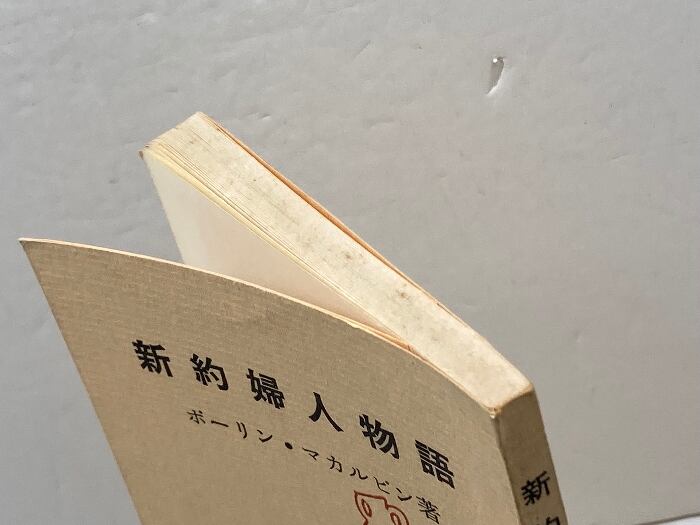 新約婦人物語
ポーリン・マカルピン著
新約